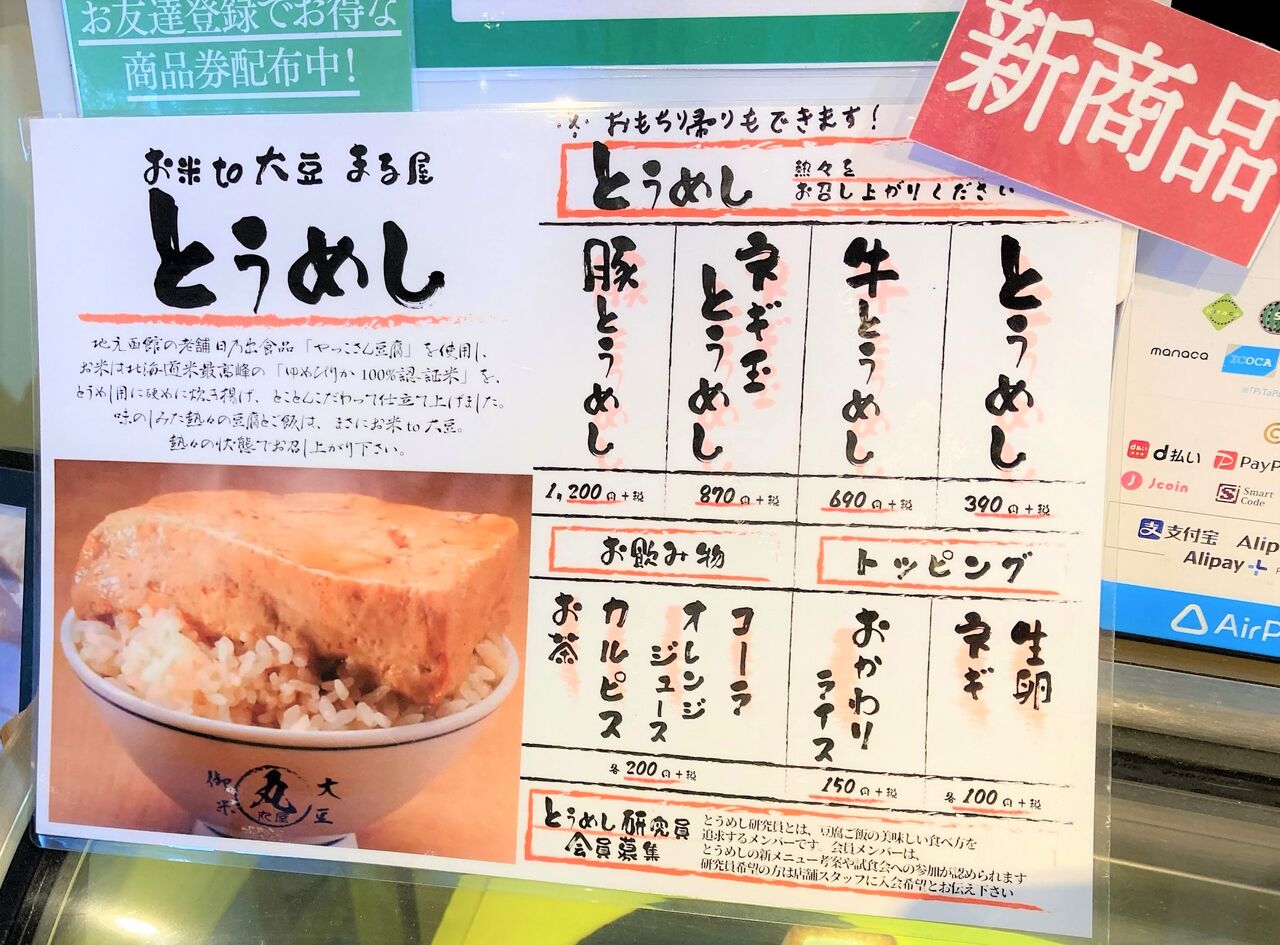 お友達登録でお得な
商品券配布中!
新商品
お米to大豆 まる屋
とうめし
地元函館の老舗日乃出食品「やっこさん豆腐」を使用し、
お米は北海道米最高峰の「ゆめぴりか100%認証米」を、
とうめし用に硬めに炊き揚げ、とことんこだわって仕立て上げました。
味のしみた熱々の豆腐とご飯は、まさにお米to大豆。
熱々の状態でお召し上がり下さい。
御米
丸
丸屋
大豆
※おもち帰りもできます!
とうめし
熱々を
お召し上がりください
とうめし
390円+税
牛とうめし
690円+税
ネギ玉
とうめし
870円+税
豚とうめし
1,200円+税
トッピング
生卵
ネギ
各100円+税
おかわり
ライス
150円+税
お飲み物
コーラ
オレンジ
ジュース
カルピス
お茶
各200円+税
とうめし研究員
会員募集
とうめし研究員とは、豆腐ご飯の美味しい食べ方を
追求するメンバーです。会員メンバーは、
とうめしの新メニュー考案や試食会への参加が認められます
研究員希望の方は店舗スタッフに入会希望とお伝え下さい
manaca
ICOCA
d払い
PayP
Jcoin
Smart
Code
支付宝
Alip
Alipay+
AirP